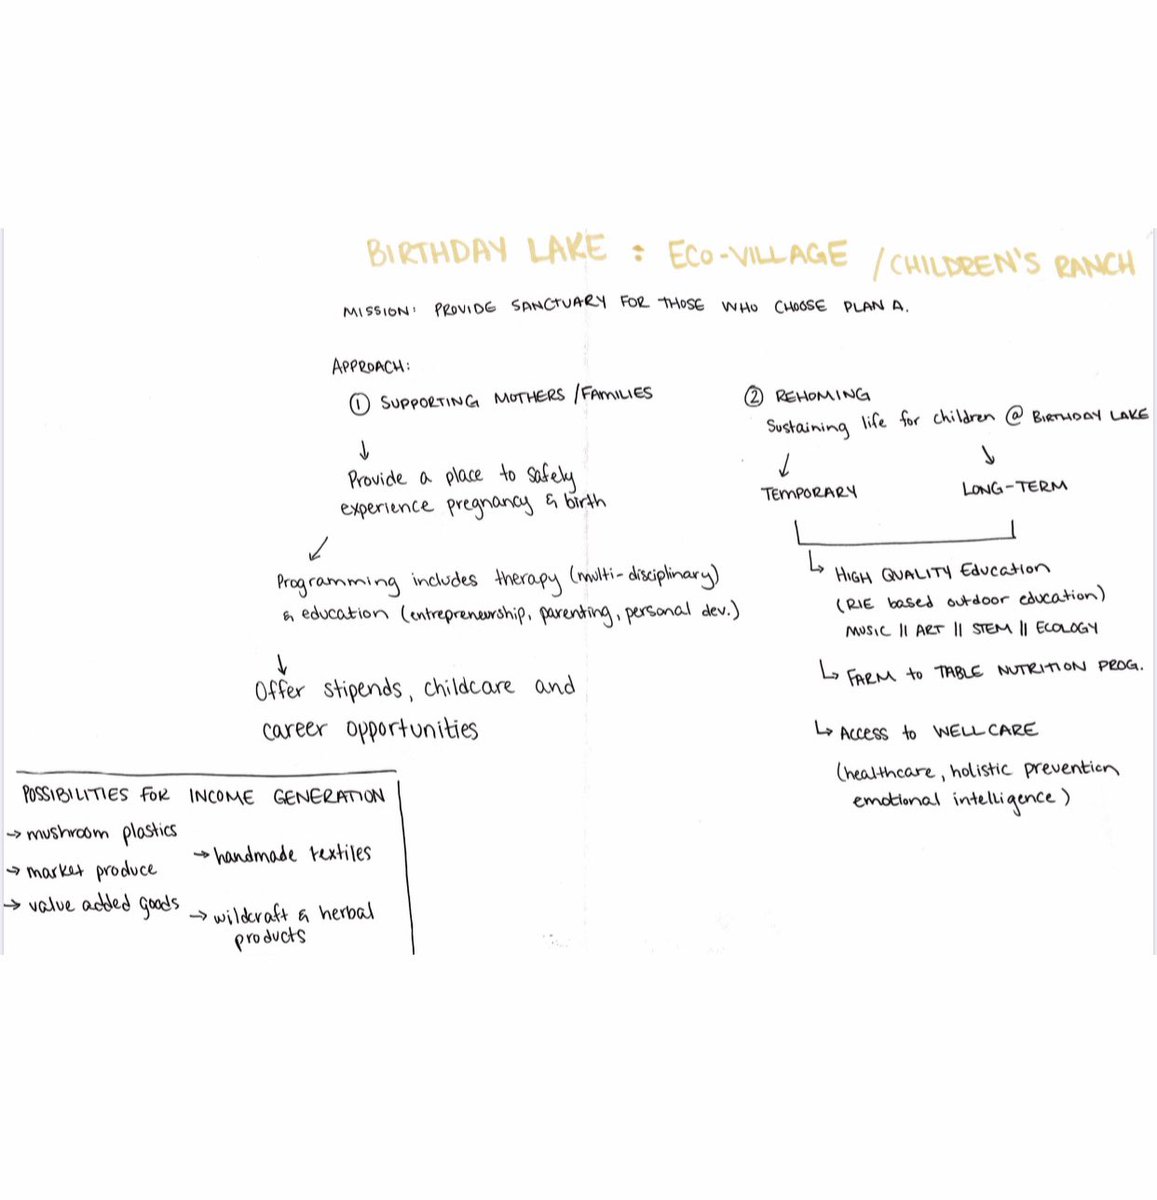 BIRTHDAY LAKE : ECO-VILLAGE / CHILDREN'S RANCH
MISSION: PROVIDE SANCTUARY FOR THOSE WHO CHOOSE PLAN A.
APPROACH:
① SUPPORTING MOTHERS / FAMILIES
↓
Provide a place to safely
experience pregnancy & birth
↙
Programming includes therapy (multi-disciplinary)
& education (entrepreneurship, parenting, personal dev.)
↓
Offer stipends, childcare and
career opportunities
② REHOMING
Sustaining life for children @ BIRTHDAY LAKE
↙ ↘
TEMPORARY LONG-TERM
↳ HIGH QUALITY Education
(RIE based outdoor education)
MUSIC || ART || STEM || ECOLOGY
↳ FARM to TABLE NUTRITION PROG.
↳ Access to WELLCARE
(healthcare, holistic prevention
emotional intelligence)
POSSIBILITIES FOR INCOME GENERATION
→ mushroom plastics
→ market produce
→ value added goods
→ handmade textiles
→ wildcraft & herbal
products